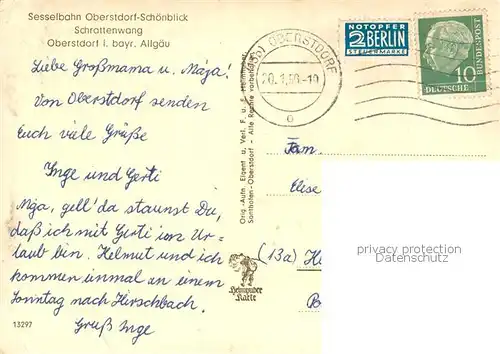 Sesselbahn Oberstdorf-Schönblick
Schrattenwang
Oberstdorf i. bayr. Allgäu
Liebe Großmama u. Maja!
Von Oberstdorf senden
Euch viele Grüße
Inge und Gerti
Maja, gell' da staunst Du,
daß ich mit Gerti im Ur-
laub bin. Helmut und ich
kommen einmal an einem
Sonntag nach Hirschbach.
Gruß Inge
13297
Orig.-Aufn. Eigent u. Verl. F. u. E.
Sonthofen-Oberstdorf - Alle Rechte vorbehalten
OBERSTDORF
NOTOPFER
2 BERLIN
STEUERMARKE
10
DEUTSCHE
BUNDESPOST
Fam.
Elise
(13a)
Heimhuber
Karte
privacy protection
DatenSchutz